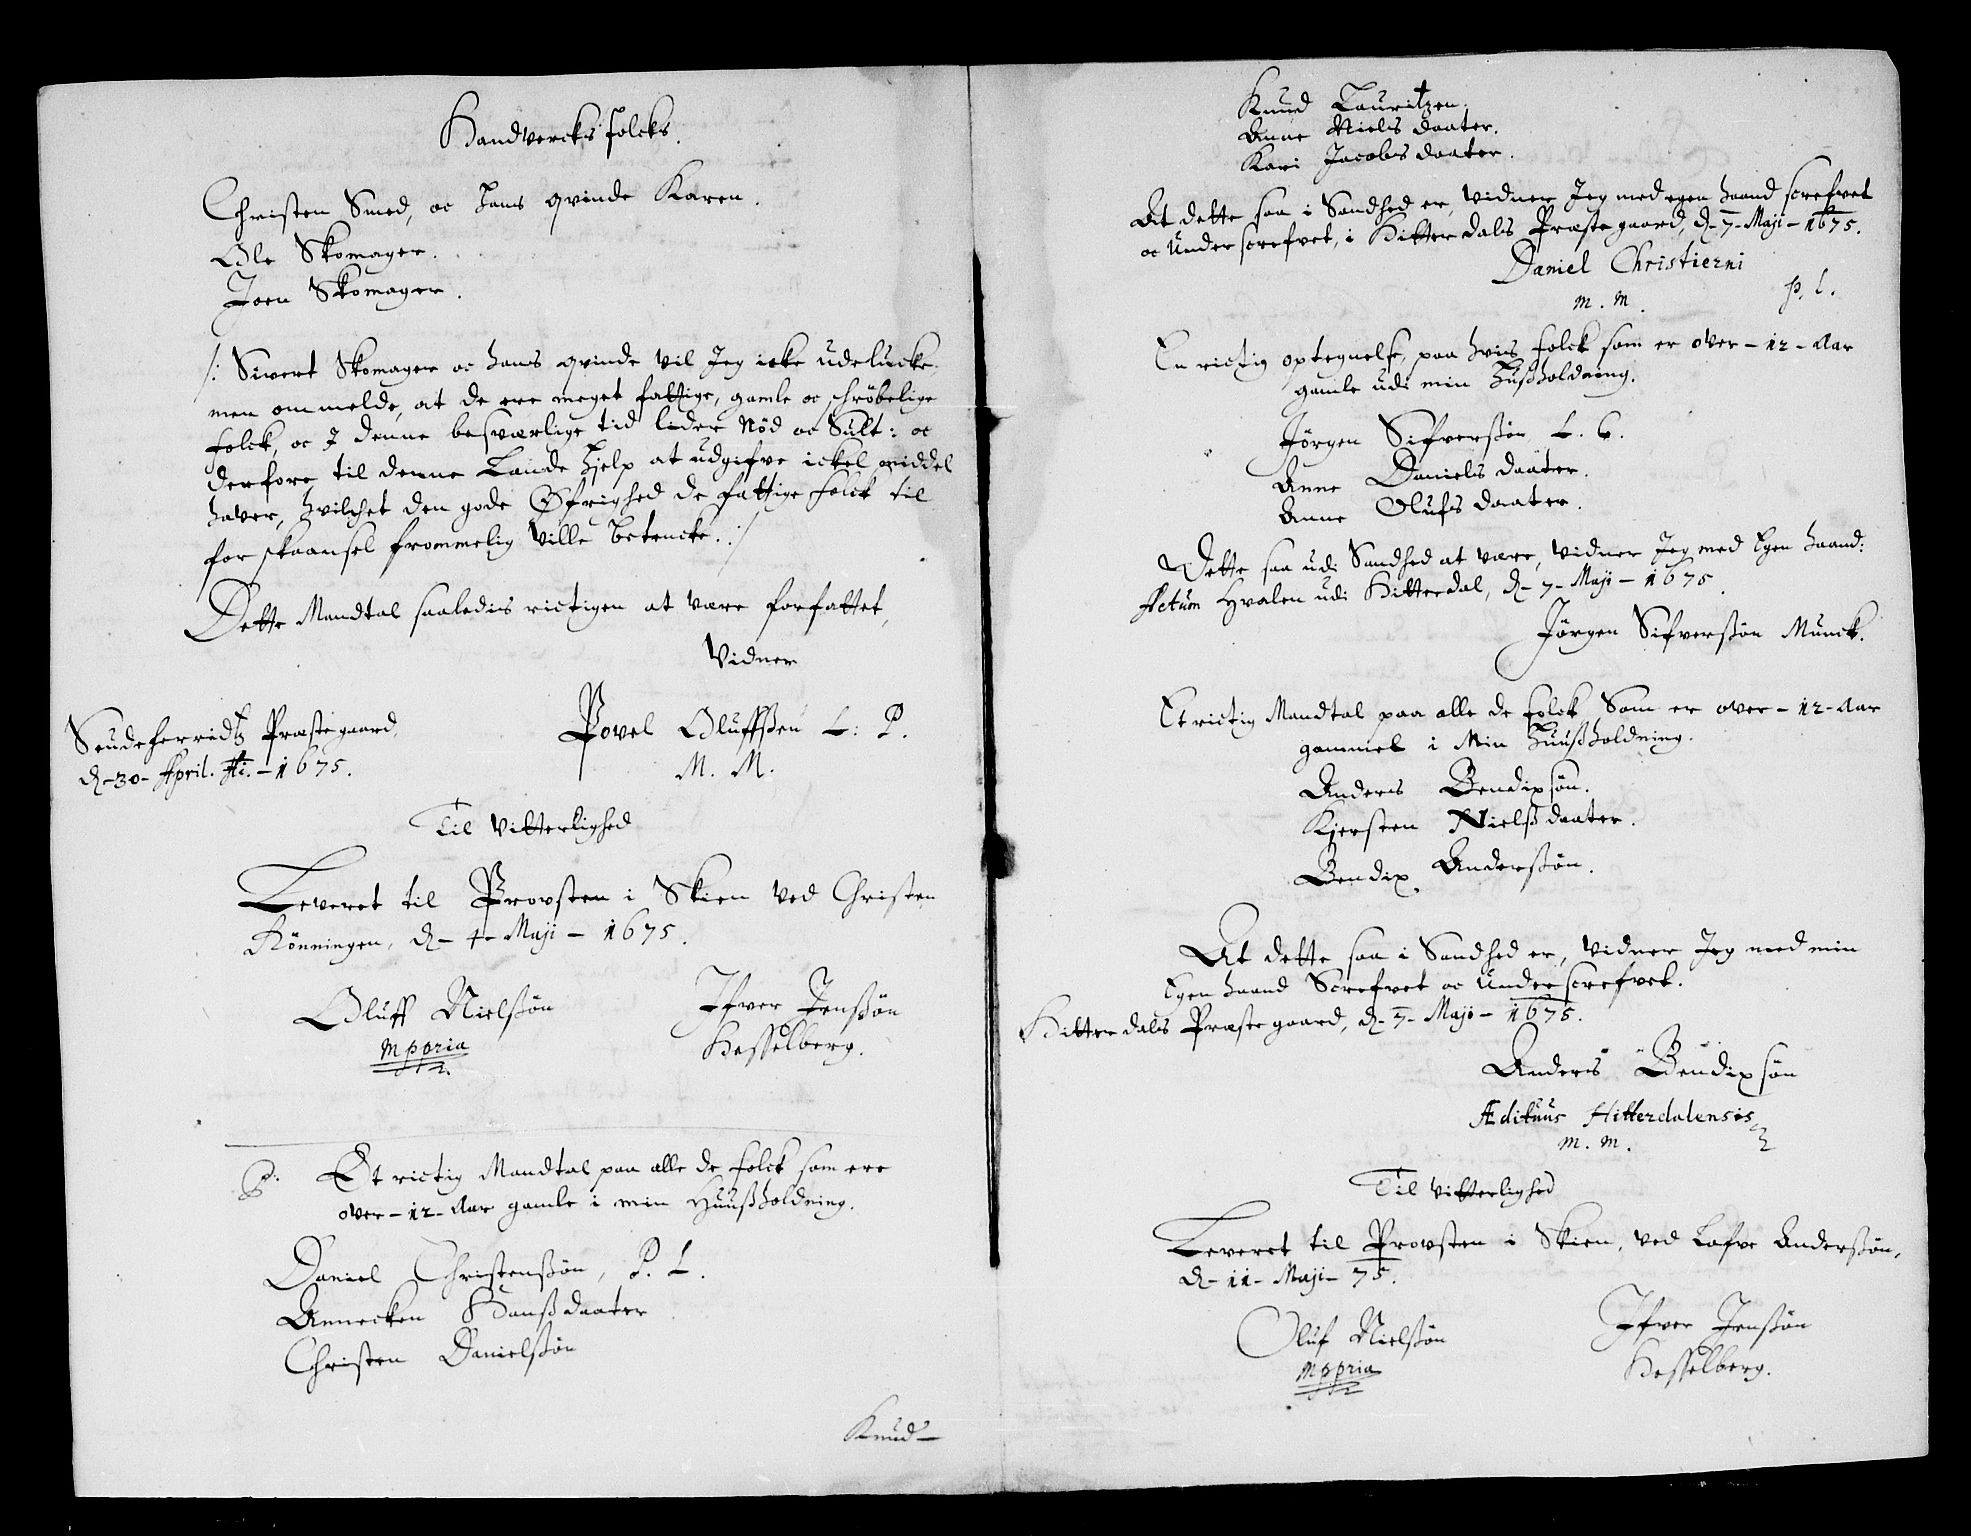 Handvercks folcks.
Christen Smed, oc hans qvinde Karen.
Ole Skomager.
Joen Skomager.
/: Sivert Skomager oc hans qvinde vil Jeg icke udelucke
men ommelde, at de ere meget fattige, gamle oc schröbelige
folck, oc J denne besværlige tid lider Nöd oc Sult: oc
derfore til denne Lande hjelp at udgifve ickel middel
haver, hvilchet den gode Øfrighed de fattige folck til
forskaansel frommelig ville betencke. :/
Dette Mandtal saaledis rictigen at være forfattet,
Vidner
Seudeherridtz Præstegaard
d-30-April. Ao.-1675.
Povel Oluffssen L: P.
M. M.
Til Vitterlighed
Leveret til Provsten i Skien ved Christen
Rönningen, d-4-Maji-1675.
Oluff Nielssön
mppria
Ifver Jenssön
Hesselberg.
Et rictig Mandtal paa alle de folck som ere
over-12-Aar gamle i min Huussholdning.
Daniel Christenssön, P. L.
Annecken Hanssdaater
Christen Danielssön
Knud-
Knud Lauritzen.
Anne Nielsdaater.
Kari Jacobsdaater.
At dette saa i Sandhed er, vidner Jeg med egen haand screfvet
oc Underscrefvet, i Hitterdals Præstegaard, d-7-Maji-1675.
Daniel Christierni
m. m. p. l.
En rictig optegnelse, paa hvis folck som er over-12-Aar
gamle udi min Hussholdning.
Jörgen Sifverssön L.
Anne Danielsdaater.
Anne Olufsdaater.
Dette saa udi Sandhed at være, vidner Jeg med Egen haand:
Actum Hvalen udi Hitterdal, d-7-Maji-1675.
Jörgen Sifverssön Munck.
Et rictig Mandtal paa alle de folck Som er over-12-Aar
gammel i Min Huussholdning.
Anders Bendixsön.
Kjersten Nielssdaater.
Bendix Anderssön.
At dette saa i Sandhed er, vidner Jeg med min
Egen haand Screfvet oc Underscrefvet.
Hitterdals Præstegaard, d-7-Maji-1675.
Anders Bendixsön
Ædituus Hitterdalensis
m. m.
Til vitterlighed
Leveret til Provsten i Skien, ved Lafve Anderssön,
d-11-Maji-75.
Oluf Nielssön
mppria
Ifver Jenssön
Hesselberg.